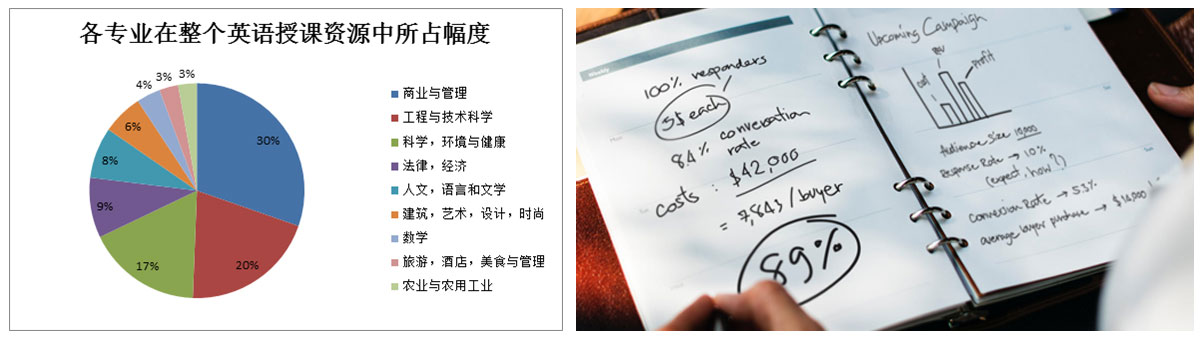 各专业在整个英语授课资源中所占幅度
3%
3%
4%
6%
8%
9%
17%
20%
30%
商业与管理
工程与技术科学
科学，环境与健康
法律，经济
人文，语言和文学
建筑，艺术，设计，时尚
数学
旅游，酒店，美食与管理
农业与农用工业
Weekly
100% responders
5$ each
84% conversation
rate
costs : $42,000
= 7,843/buyer
89%
Upcoming Campaign
cost
profit
Audience size 10,000
Response Rate → 10%
(expect, how?)
Conversion Rate → 5.3%
average buyer purchase → $